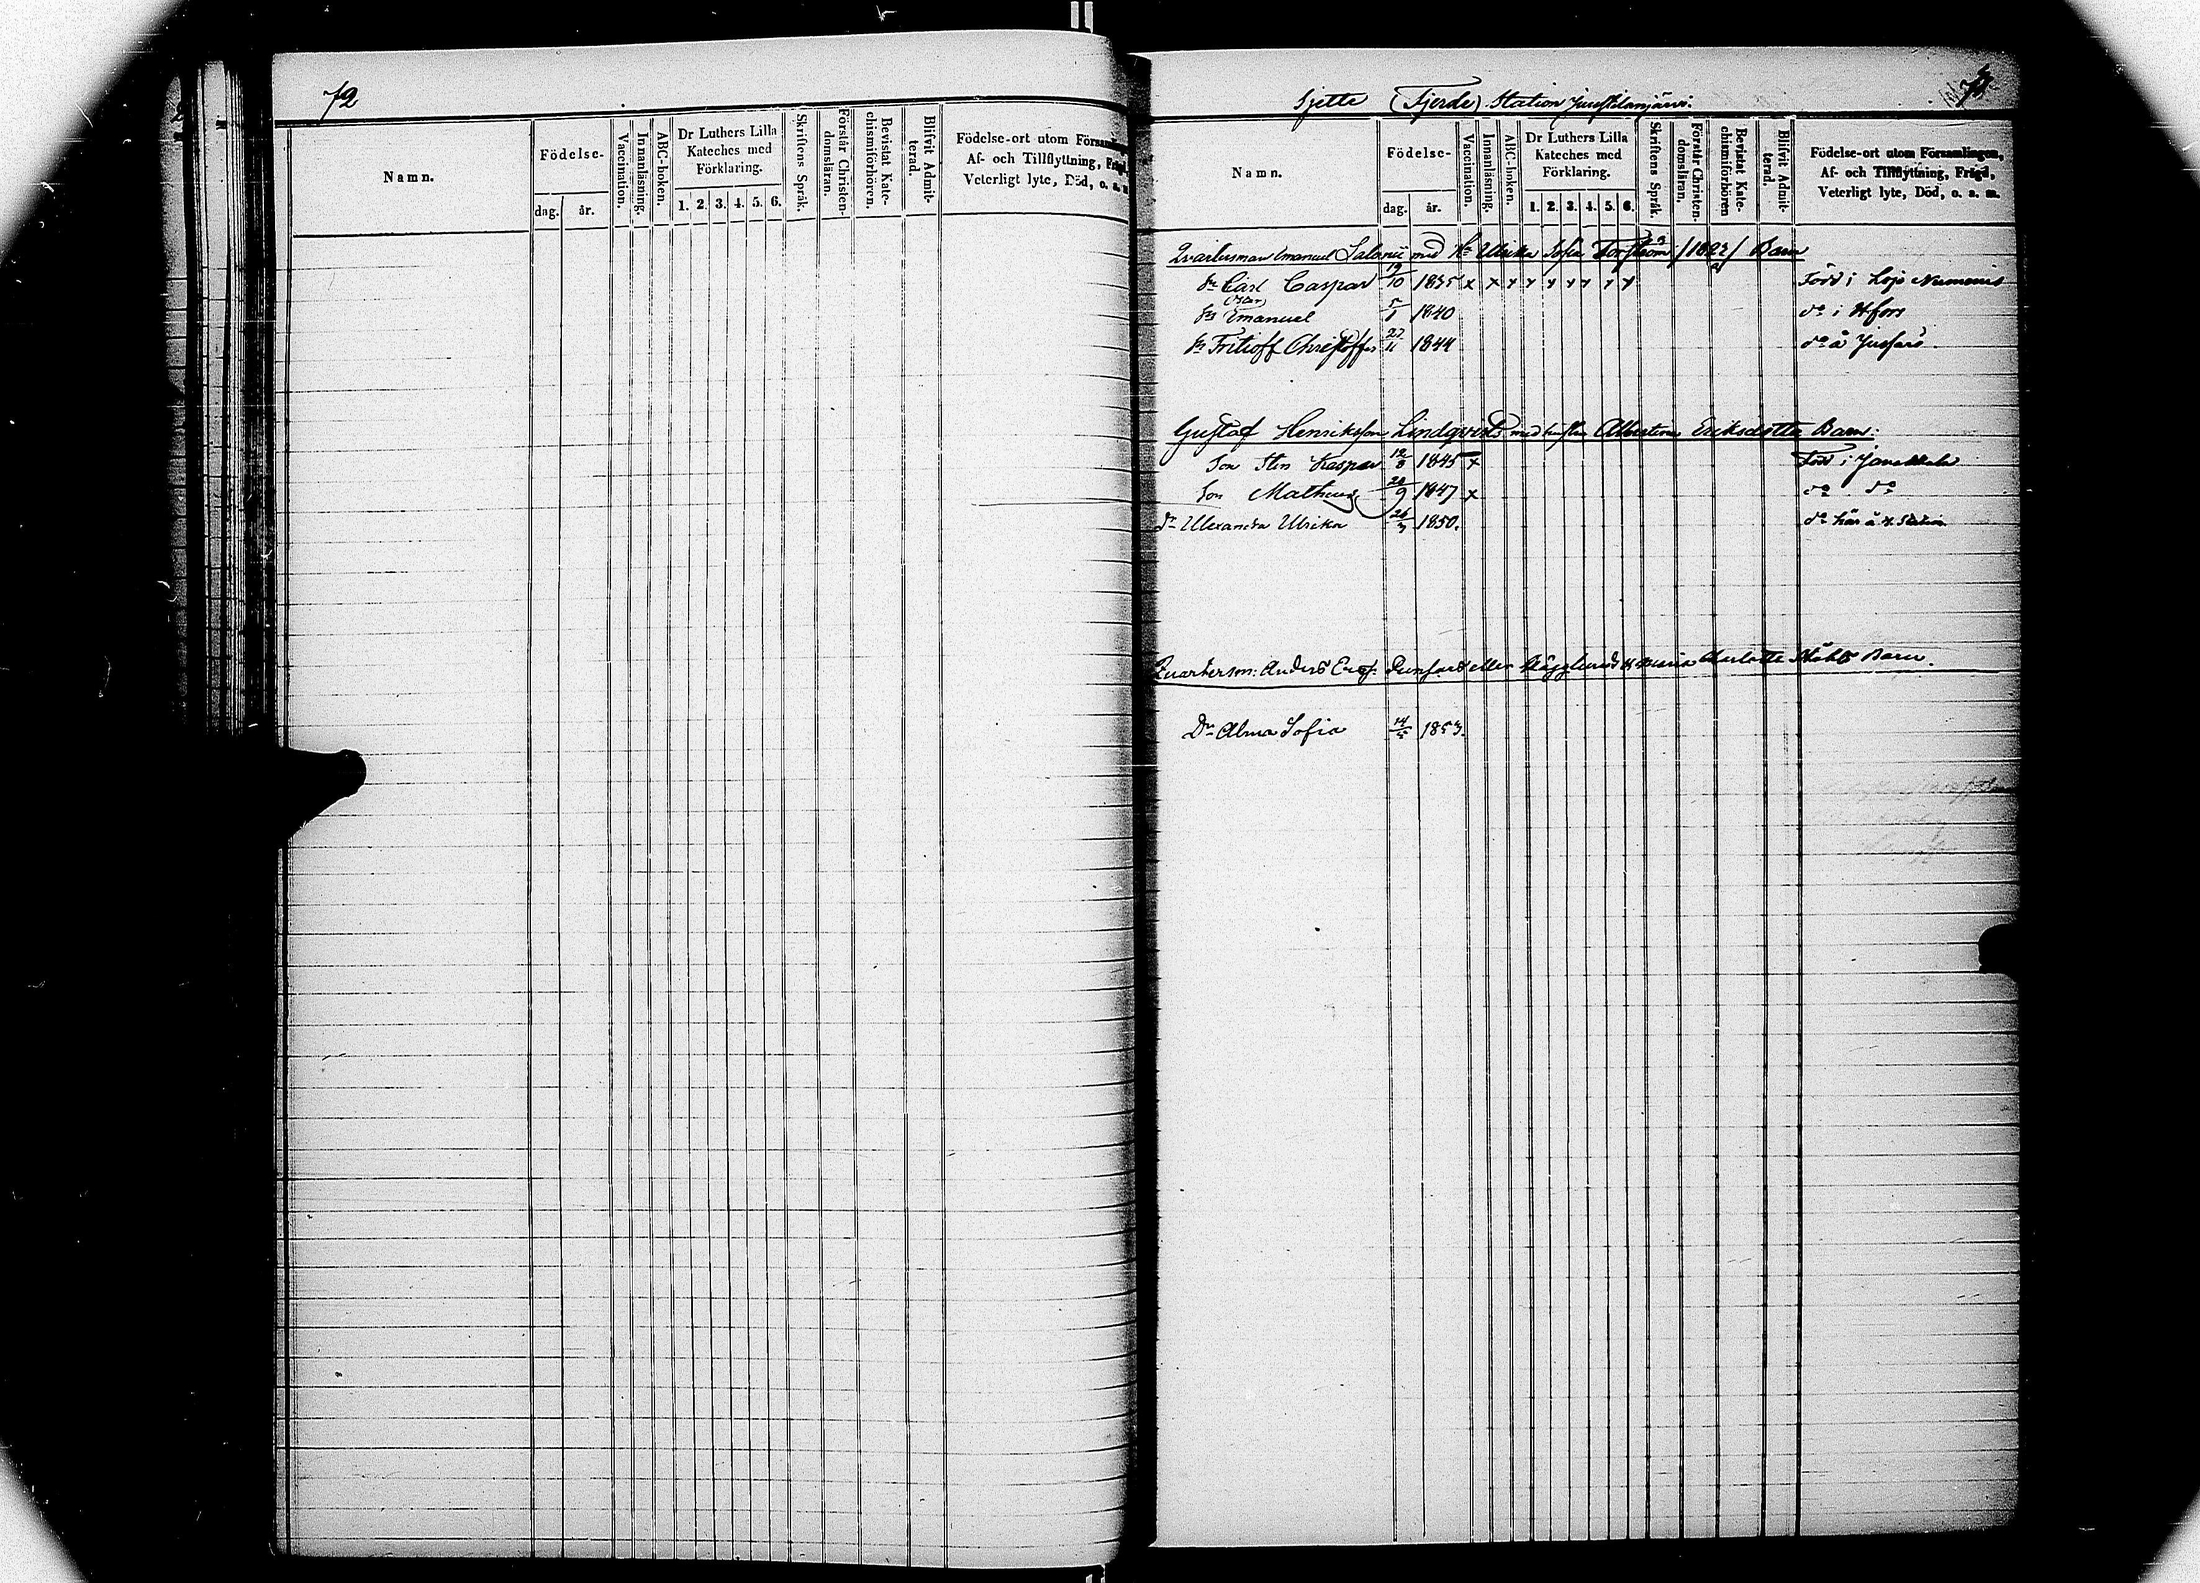 72
Namn. Födelse- dag. år. Vaccination. Innanläsning. ABC-boken. Dr Luthers Lilla Kateches med Förklaring. 1. 2. 3. 4. 5. 6. Skriftens Språk. Förstår Christen-domsläran. Bevistat Kate-chismiförhören. Blifvit Admit-terad. Födelse-ort utom Församling Af- och Tillflyttning, Veterligt lyte, Död, o. a. m
Sjette (Fjerde) Station
Namn. Födelse- dag. år. Vaccination. Innanläsning. ABC-boken. Dr Luthers Lilla Kateches med Förklaring. 1. 2. 3. 4. 5. 6. Skriftens Språk. Förstår Christen-domsläran. Bevistat Kate-chismiförhören Blifvit Admit-terad. Födelse-ort utom Församlingen, Af- och Tillflyttning, Frägd, Veterligt lyte, Död, o. a. m.
Emanuel med Ulrika Sofia Barn
Carl Caspar 19/10 1835 x x x x x x x x x Född i Lojo Nummis
Emanuel 5/1 1840 do i Hfors
Fritioff Christoffer 22/11 1844 do å Jusarö
Gustaf Henriksson Lindqvists med hustru Albertina Eriksdotter Barn:
Son Sten Kaspar 12/8 1845 x Född i Janakkala
Son Matheus 28/9 1847 x do do
Dr Alexandra Ulrika 26/3 1850. do här å 4 Station
Anders eller Hägglunds Maria Charlotta Barn.
Dr Alma Sofia 14/5 1853.